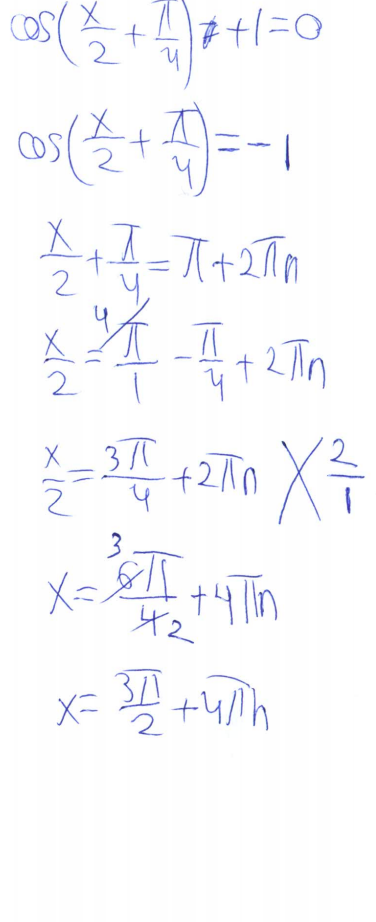 cos(x/2 + π/4) + 1 = 0
cos(x/2 + π/4) = -1
x/2 + π/4 = π + 2πn
x/2 = 4/ π/1 - π/4 + 2πn
x/2 = 3π/4 + 2πn × 2/1
x = 3 6π/4 2 + 4πn
x = 3π/2 + 4πn